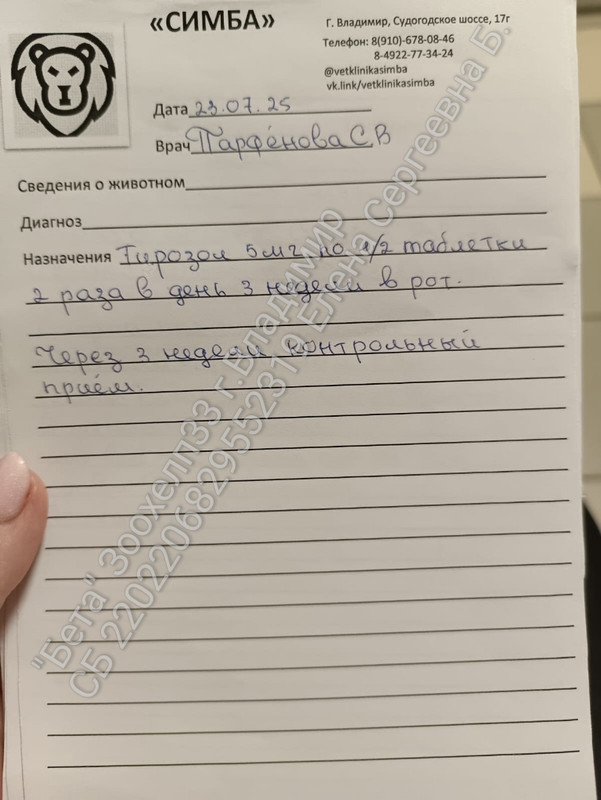 «СИМБА»
Г. Владимир, Судогодское шоссе, 17г
Телефон: 8(910)-678-08-46
8-4922-77-34-24
@vetklinikasimba
vk.link/vetklinikasimba
Дата 23.07.25
Врач Парфёнова С.В
Сведения о животном
Диагноз
Назначения Тирозол 5мг по 1/2 таблетки
2 раза в день 3 недели в рот.
Через 3 недели контрольный
приём.
"Бета" Зоохелп33 г.Владимир
СБ 2202206829552311 Елена Сергеевна Б.